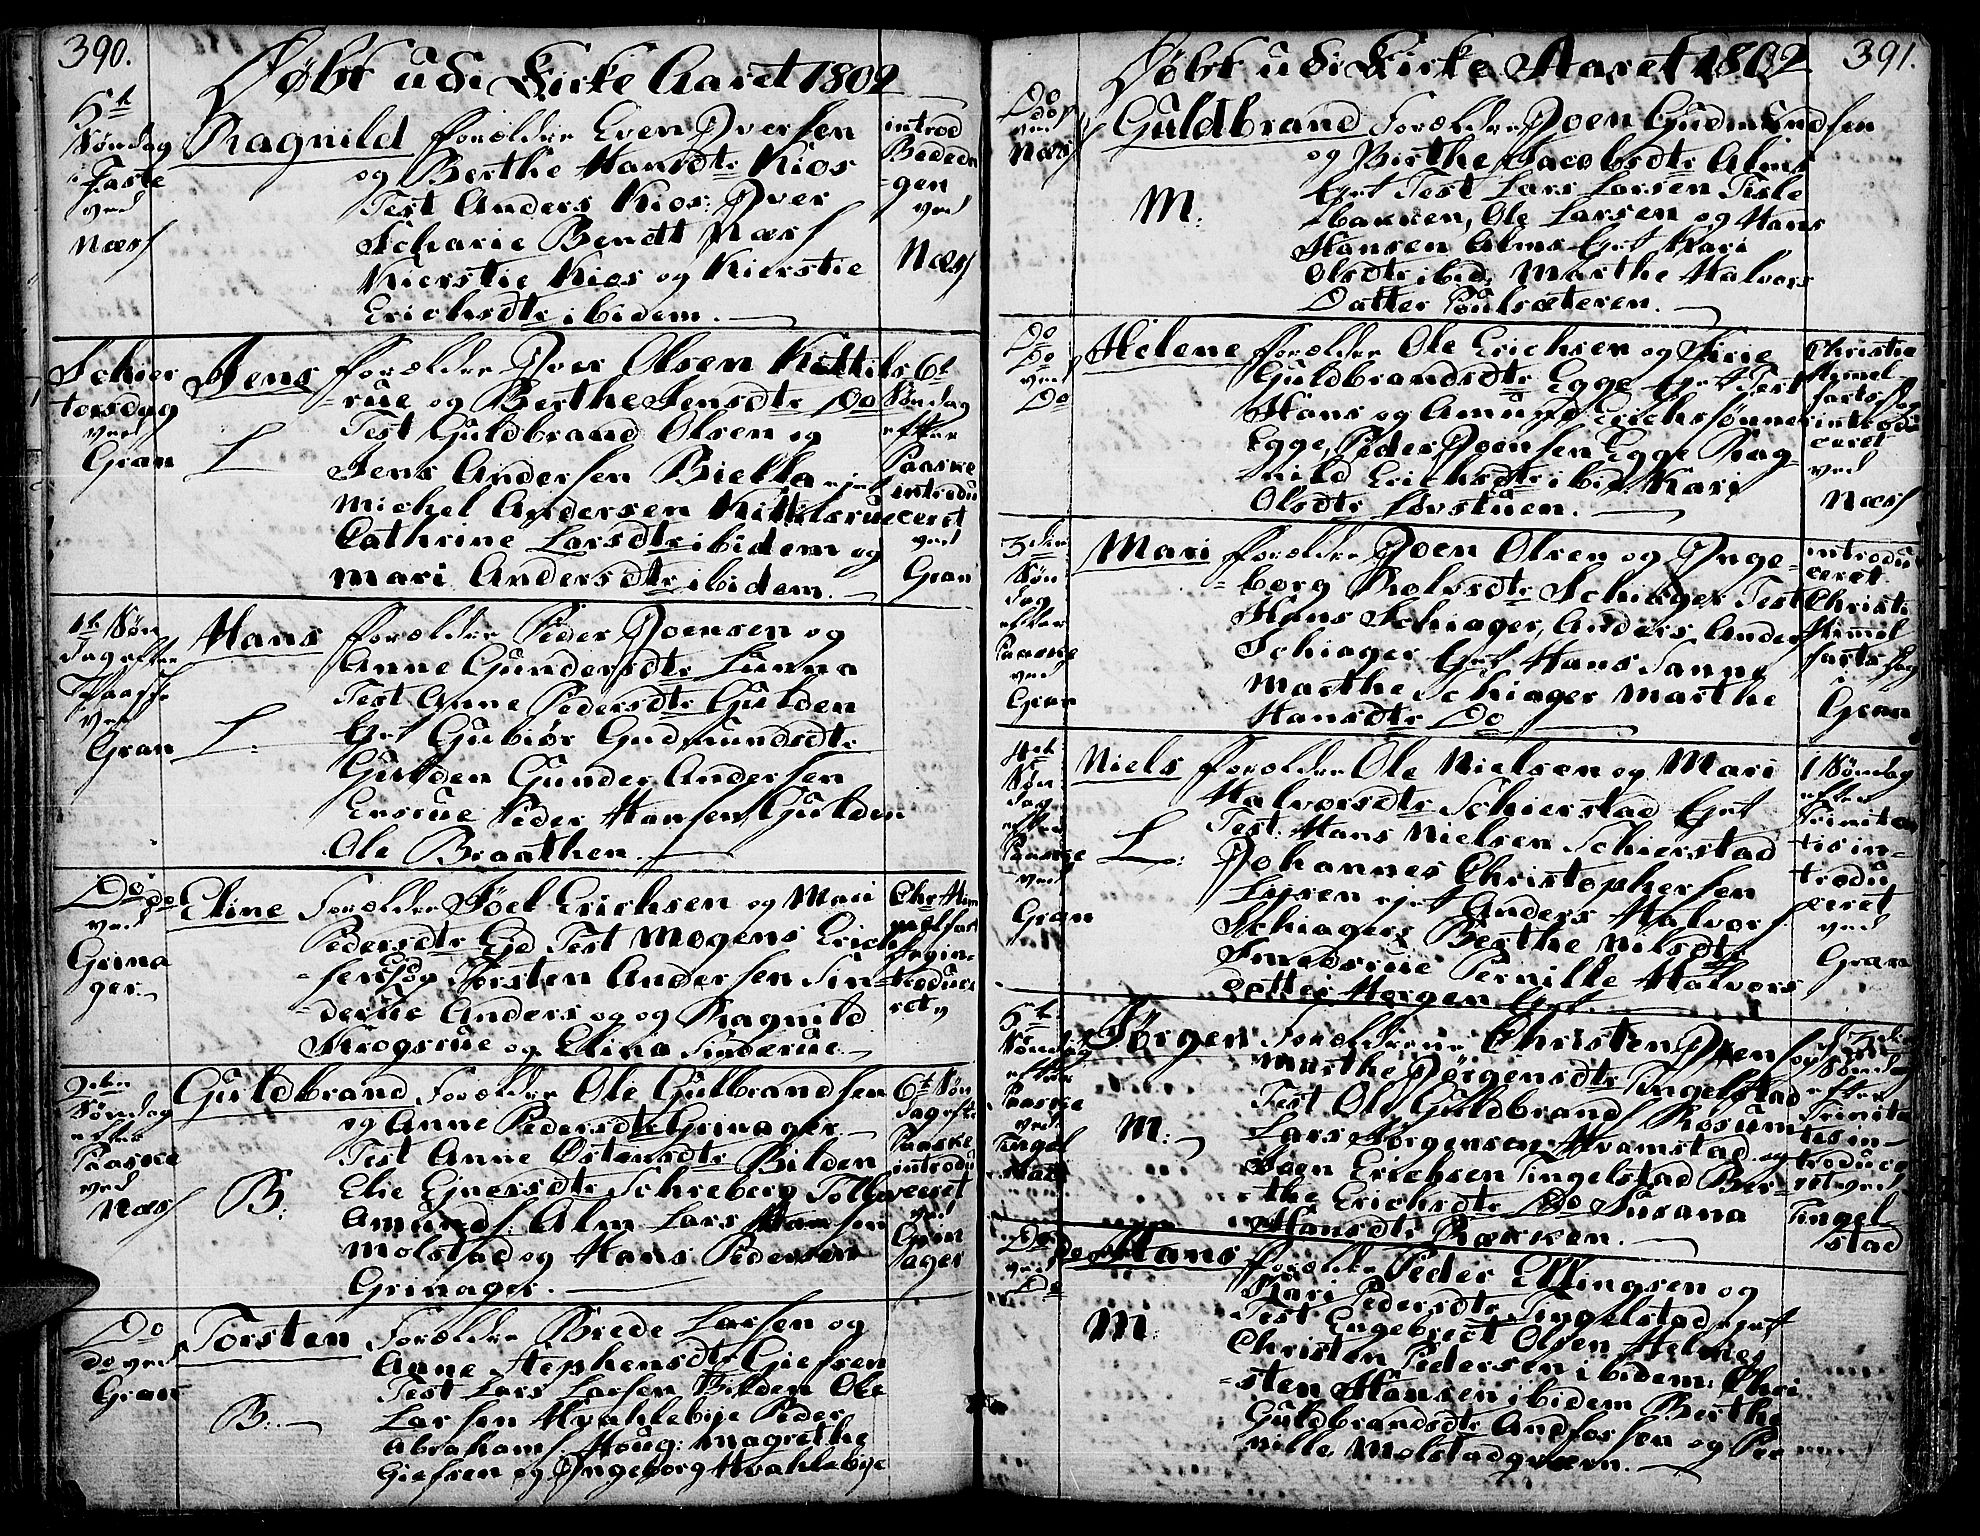 390.
Døbt udi Kirke Aaret 1802
5t
Søndag
i Faste
ved
Næss
Ragnild forældre Even Iversen
og Berthe Hansdtr Kios
Test Anders Kios: Iver
Scharie Berdt Næss
Kierstie Kios og Kierstie
Erichsdtr ibidem.
introd
Bededa
=gen
ved
Næss
Schier
torsdag
ved
Gran
Jens forældre Iver Olsen Kittils
=rue og Berthe Jensdtr Do
L Test Guldbrand Olsen og
Jens Andersen Biella
Michel Andersen Kittilsrue
Cathrine Larsdtr ibidem og
Mari Andersdtr ibidem.
6t
Søndag
efter
Paaske
introdu
ceret
ved
Gran
1t Søn
dag efter
Paaske
ved
Gran
Hans forældre Peder Joensen og
Anne Gundersdtr Lunna
Test Anne Pedersdtr Gulden
L: Grt Gubiør Gudmundsdtr
Gulden Gunder Andersen
Ensrue Peder Hansen Gulden
Ole Braathen.
Do do
ved
Grina
ger.
Eline Forældre Joel Erichsen og Mari
Pedersdtr Eid Test Mogens Erich
=sen og Torsten Andersen Sin=
=derue Anders og og Ragnild
Krogsrue og Elina Sinderue
Chr Him
melfart
introduce
ret
2den
Søndag
efter
Paaske
ved
Næss
Guldbrand Forældre Ole Gulbrandsen
og Anne Pedersdtr Grinager
Test Anne Østensdtr Bilden
B: Elie Ejnersdtr Schreberg
Amunds: Alm Lars Hansen
Molstad og Hans Pedersen
Grinager.
6t Søn
dag efter
Paaske
introdu
ceret
ved
Grin
ager
Do
do ved
Gran
Torsten Forældre Brede Larsen og
Anne Stephensdtr Giefsen
Test Lars Larsen Bilden Ole
B: Larsen Hvahlebye Peder
Abrahams: Houg: Magrethe
Giefsen og Ingeborg Hvahlebye
391.
Døbt udi Kirke Aaret 1802
Do
ved
Næss
Guldbrand Forældre Joen Gudmundsen
og Birthe Jacobsdtr Alms
M. Eyet Test Lars Larsen Tisle
bakken, Ole Larsen og Hans
Hansen Alms Eyet Kari
Olsdtr ibid, Marthe Halvors
Datter Poulsæteren.
Do
Do
ved
Do
Helene forældre Ole Erichsen og Sirie
Guldbrandsdtr Egge Eyet Test
Hans og Amund Erichssønner
Egge, Peder Joensen Egge Rag
nild Erichsdtr ibid: Kari
Olsdtr Løvstuen.
Christie
himel
farts Dag
introdu
ceret
ved
Næss
3den
Søn
dag
efter
Paaske
ved
Gran
Mari forældre Joen Olsen og Inge=
=borg Rolvsdtr Schiager Test
Hans Schiager, Anders Anders
Schiager Eyet Hans Sanne
Marthe Schiager Marthe
Hansdtr Do
introdu
ceret
Christi
Himel
farts Dag
i
Gran
4t
Søn
dag
efter
Paaske
ved
Gran
Niels forældre Ole Nielsen og Mari
Halvorsdtr Schierstad Eyet
Test: Hans Nielsen Schierstad
L: Johannes Christophersen
Lysen eyet Anders Halvors
Schiager: Berthe Nilsdtr
Smedsrue Pernille Halvors
datter Horgen Eyet.
1 Søndag
efter
Trinita
tis in=
trodu
ceret
ved
Gran
5t
Søndag
efter
Paaske
ved
Tingel
stad
Jørgen forældrene Christen Joens: og
Marthe Jørgensdtr Tingelstad
Test Ole Guldbrands Røsum
M: Lars Jørgensen Hvamstad og
Joen Erichsen Tingelstad Ber=
the Erichsdtr Do Susana
Hansdtr Rækken.
3die
Søndag
efter
Trinita
tis in=
troduce
ret ved
Tingel
stad
Do
Do
ved
Do
Hans forældre Peder Ellingsen og
Kari Pedersdtr Tingelstad eyet
Test Engebrect Olsen Helmei
M: Christen Pedersen ibidem: Chri
=sten Hansen ibidem Berthe
Guldbrandsdtr Andfossen og Per
nille Molstadqværn.